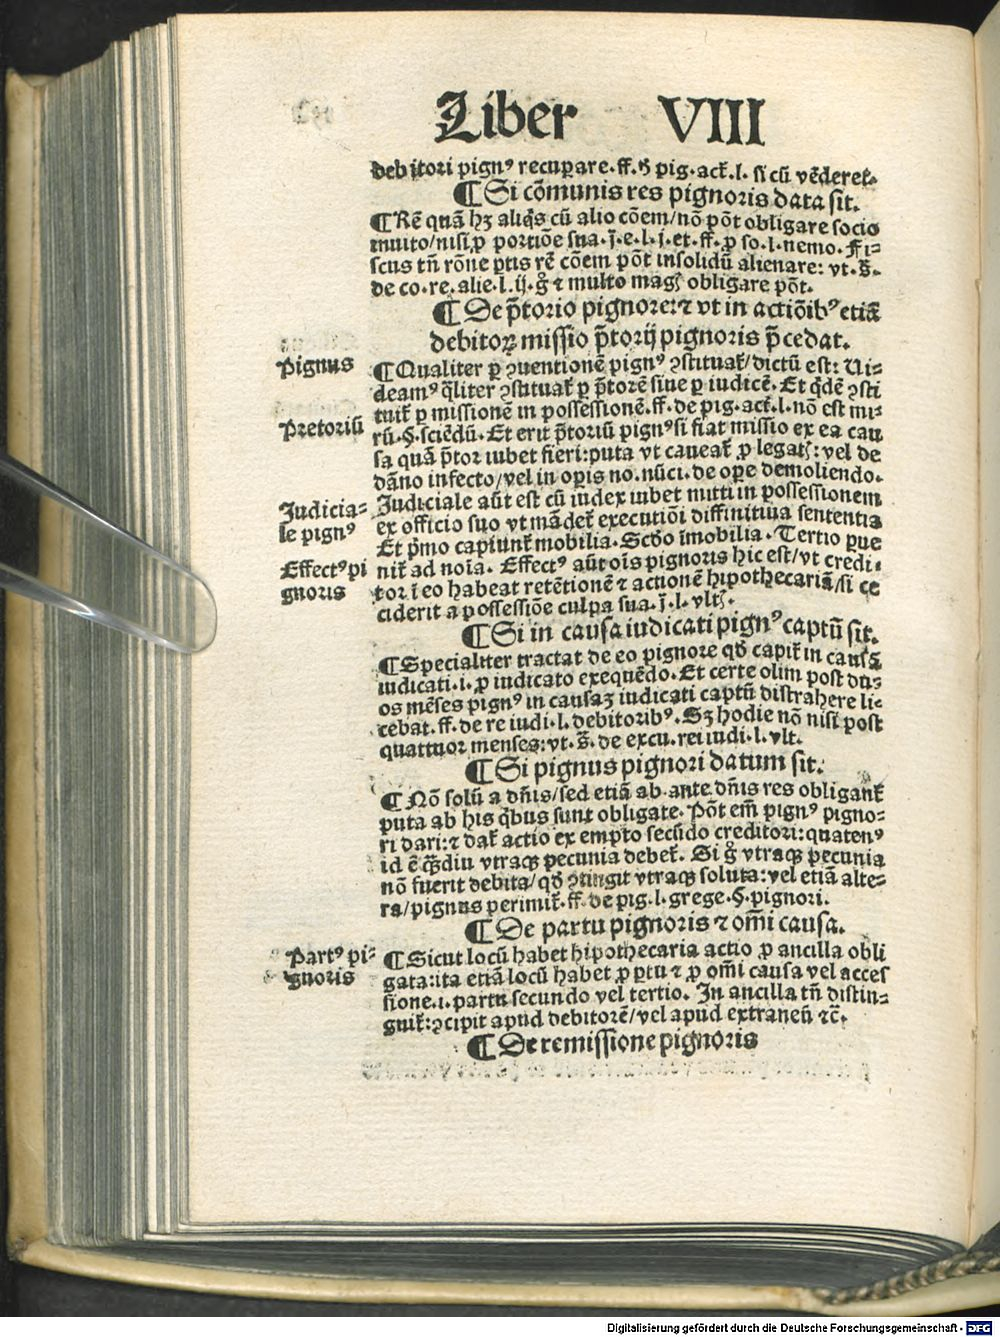 Liber VIII
debitori pignꝰ recuꝑare. ff. ď pig. act̃. l. si cũ vẽderet.
¶ Si cõmunis res pignoris data sit.
¶ Rẽ quã hꝫ aliq̃s cũ alio cõem/nõ põt obligare socio
inuito/nisi ꝓ portiõe sua. j̃. e. l. j. et. ff. ꝓ so. l. nemo. Fi⸗
scus tñ rõne ꝑtis rẽ cõem põt insolidũ alienare: vt. s̃.
de co. re. alie. l. ij. g̊ ⁊ multo mag̃ obligare põt.
¶ De p̃torio pignore: ⁊ vt in actiõibꝰ etiã
debitoꝝ missio p̃torij pignoris p̃cedat.
Pignus
¶ Qualiter ꝑ ꝯuentionẽ pignꝰ ꝯstituat̃/dictũ est: Ui⸗
deamꝰ q̃liter ꝯstituat̃ ꝑ p̃torẽ siue ꝑ iudicẽ. Et q̃dẽ ꝯsti
tuit̃ ꝑ missionẽ in possessionẽ. ff. de pig. act̃. l. nõ est mi⸗
Pretoriũ
rũ. §. sciẽdũ. Et erit p̃toriũ pignꝰ si fiat missio ex ea cau
sa quã p̃tor iubet fieri: puta vt caueat̃ ꝓ legat̃: vel de
dãno infecto/vel in oꝑis no. nũci. de oꝑe demoliendo.
Judicia⸗
le pignꝰ
Judiciale aũt est cũ iudex iubet mitti in possessionem
ex officio suo vt mãdet̃ executiõi diffinitiua sententia
Et p̃mo capiunt̃ mobilia. Scd̃o imobilia. Tertio ꝑue
Effectꝰ pi
gnoris
nit̃ ad noĩa. Effectꝰ aũt oĩs pignoris hic est/vt credi⸗
tor ĩ eo habeat retẽtionẽ ⁊ actionẽ hipothecariã/si ce
ciderit a possessiõe culpa sua. j̃. l. vlt̃.
¶ Si in causa iudicati pignꝰ captũ sit.
¶ Specialiter tractat de eo pignore qd̃ capit̃ in causa
iudicati. i. ꝓ iudicato exequẽdo. Et certe olim post du⸗
os mẽses pignꝰ in causaꝫ iudicati captũ distrahere li⸗
cebat. ff. de re iudi. l. debitoribꝰ. Sꝫ hodie nõ nisi post
quattuor menses: vt. s̃. de excu. rei iudi. l. vlt.
¶ Si pignus pignori datum sit.
¶ Nõ solũ a dñis/sed etiã ab ante dñis res obligant̃
puta ab his q̃bus sunt obligate. Põt em̃ pignꝰ pigno⸗
ri dari: ⁊ dat̃ actio ex empto secũdo creditori: quatenꝰ
id ẽ q̃diu vtraqꝫ pecunia debet̃. Si g̊ vtraqꝫ pecunia
nõ fuerit debita/qd̃ ꝯtingit vtraqꝫ soluta: vel etiã alte⸗
ra/pignus perimit̃. ff. de pig. l. grege. §. pignori.
¶ De partu pignoris ⁊ om̃i causa.
Partꝰ pi⸗
gnoris
¶ Sicut locũ habet hipothecaria actio ꝓ ancilla obli
gata: ita etiã locũ habet ꝓ ꝑtu ⁊ ꝓ om̃i causa vel acces
sione. i. partu secundo vel tertio. In ancilla tñ distin⸗
guit̃: ꝯcipit apud debitorẽ/vel apud extraneũ ⁊c̃.
¶ De remissione pignoris
Digitalisierung gefördert durch die Deutsche Forschungsgemeinschaft - DFG